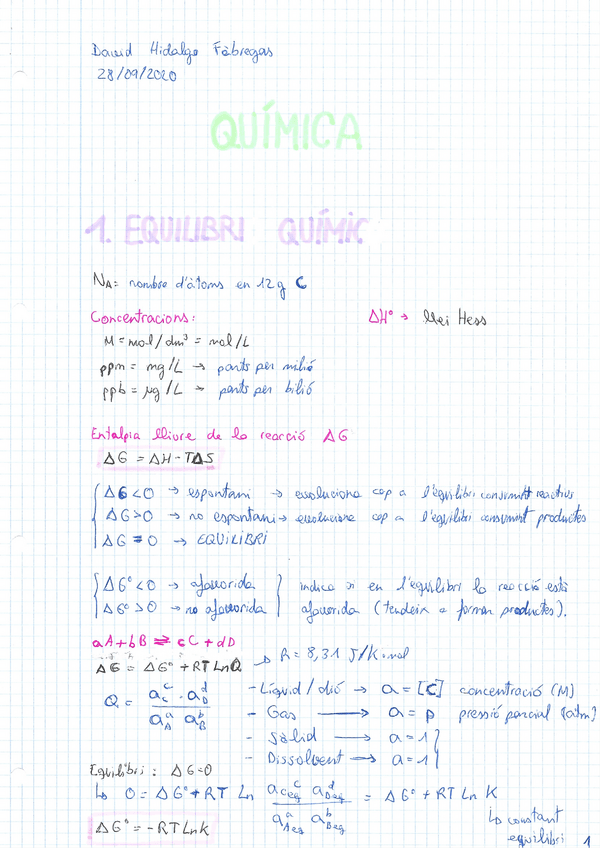 David Hidalgo Fàbregas
28/09/2020
QUÍMICA
1. EQUILIBRI QUÍMIC
NA = nombre d'àtoms en 12 g C
Concentracions: ΔH° → Llei Hess
M = mol/dm³ = mol/L
ppm = mg/L → parts per milió
ppb = μg/L → parts per bilió
Entalpia lliure de la reacció ΔG
ΔG = ΔH - TΔS
ΔG < 0 → espontani → evoluciona cap a l'equilibri consumint reactius
ΔG > 0 → no espontani → evoluciona cap a l'equilibri consumint productes
ΔG = 0 → EQUILIBRI
ΔG° < 0 → afavorida } indica si en l'equilibri la reacció està
ΔG° > 0 → no afavorida } afavorida (tendeix a formar productes).
aA + bB ⇌ cC + dD
ΔG = ΔG° + RT Ln Q → R = 8,31 J/K·mol
Q = a_C^c · a_D^d / a_A^a a_B^b
- Líquid / dió → a = [C] concentració (M)
- Gas → a = p pressió parcial (atm)
- Sòlid → a = 1
- Dissolvent → a = 1
Equilibri: ΔG = 0
↳ 0 = ΔG° + RT Ln a_Ceq^c a_Deq^d / a_Aeq^a a_Beq^b = ΔG° + RT Ln K
↳ constant equilibri
ΔG° = -RT Ln K
1